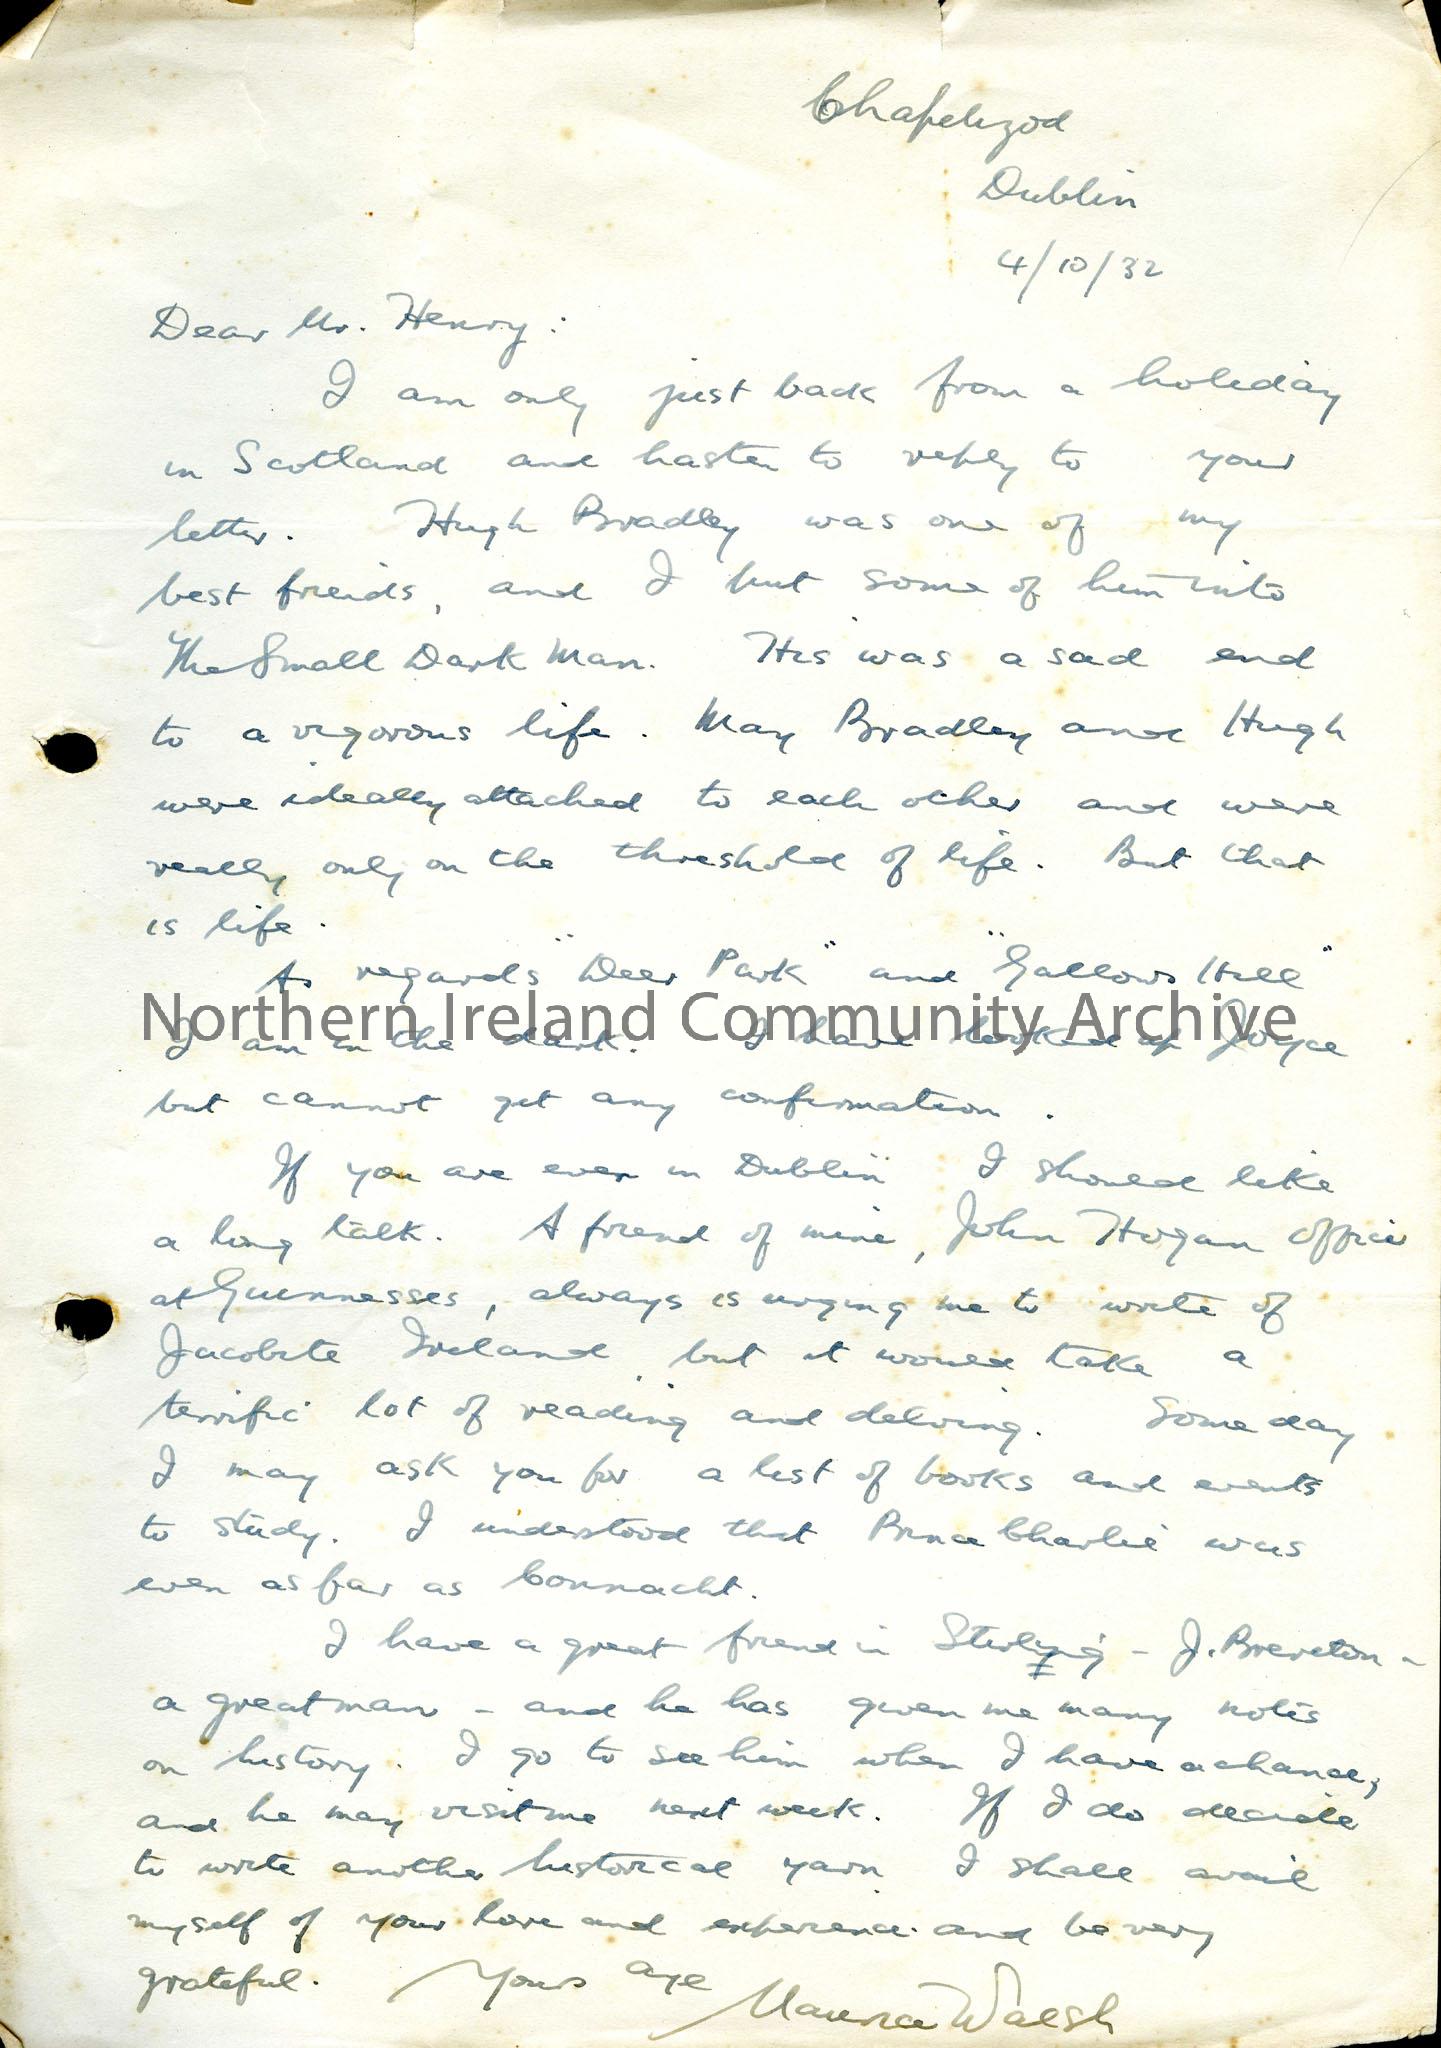 Chapelizod
Dublin
4/10/32
Dear Mr. Henry:
I am only just back from a holiday
in Scotland and hasten to reply to your
letter. Hugh Bradley was one of my
best friends, and I put some of him into
The Small Dark Man. His was a sad end
to a vigorous life. May Bradley and Hugh
were ideally attached to each other and were
really only on the threshold of life. But that
is life.
As regards "Deer Park" and "Gallows Hill"
Northern Ireland Community Archive
I am in the dark. I have looked up Joyce
but cannot get any confirmation.
If you are ever in Dublin I should like
a long talk. A friend of mine, John Hogan officer
at Guinnesses, always is urging me to write of
Jacobite Ireland but it would take a
terrific lot of reading and delving. Some day
I may ask you for a list of books and events
to study. I understood that Prince Charlie was
even as far as Connacht.
I have a great friend in Stirling - J. Brereton -
a great man - and he has given me many notes
on history. I go to see him when I have a chance,
and he may visit me next week. If I do decide
to write another historical yarn I shall avail
myself of your lore and experience and be very
grateful. Yours aye
Maurice Walsh